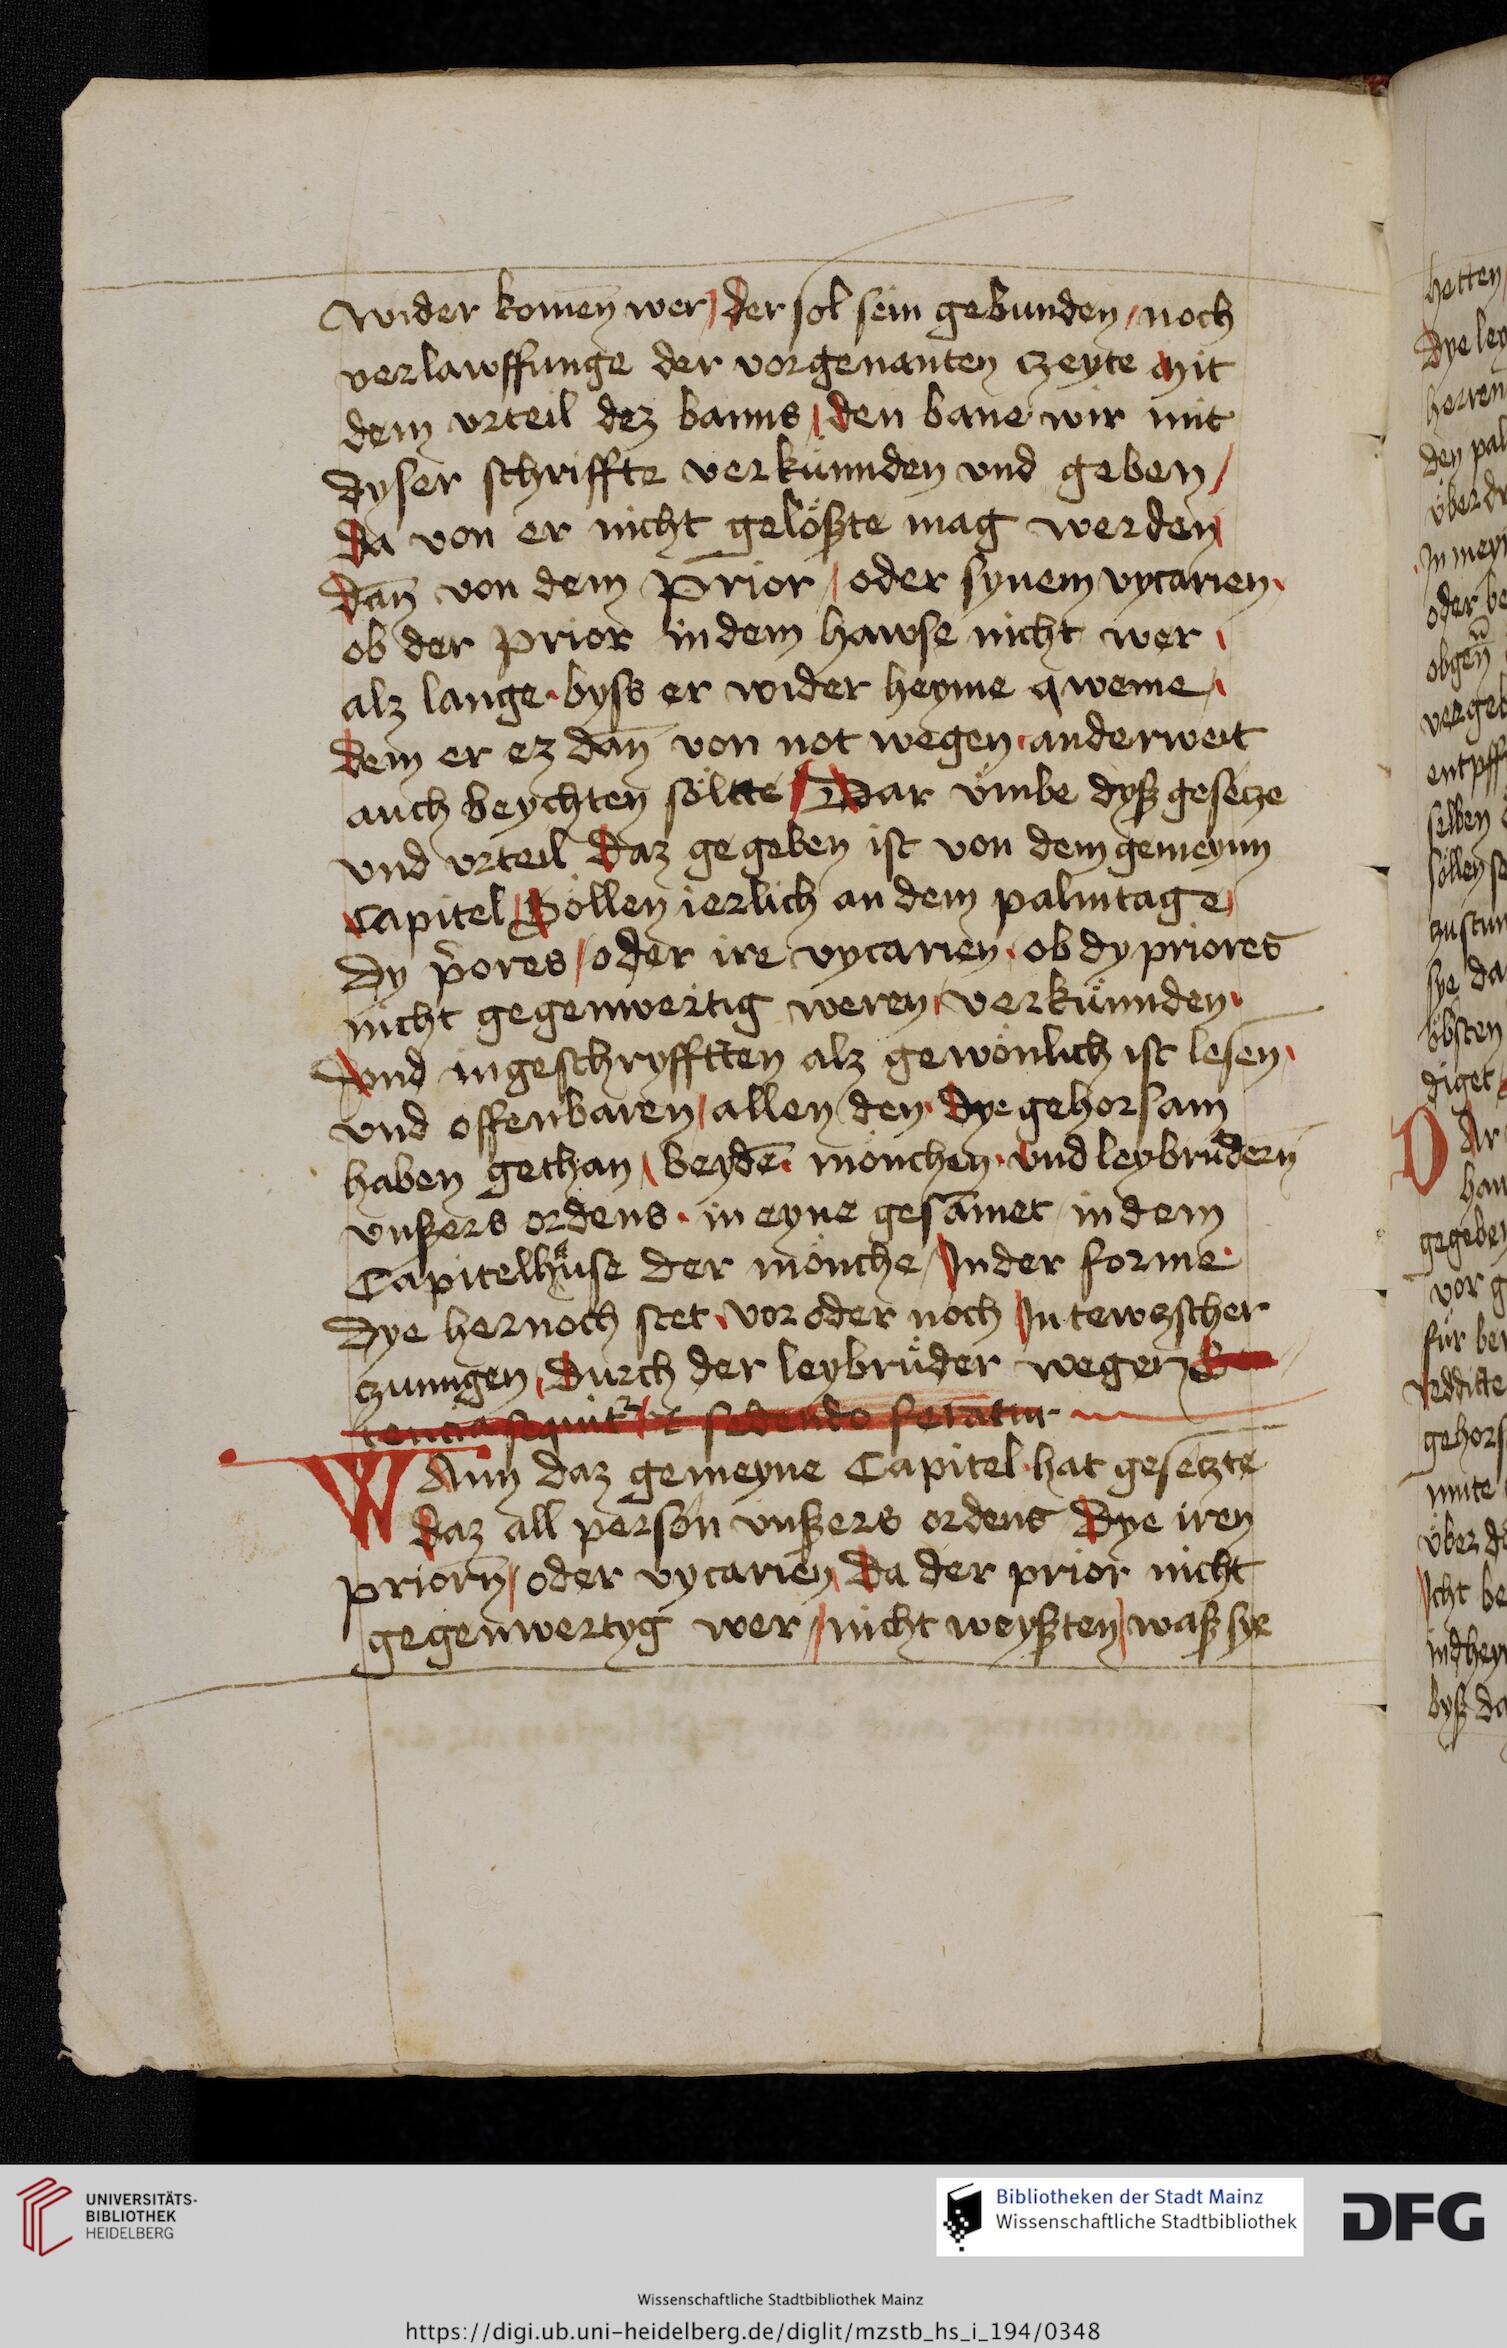 wider komen̄ wer / der sol sein gebunden / noch
verlawffunge der vorgenanten czeyte mit
dem vrteil dez banns / den bane wir mit
dyser schriffte verkünnden vnd geben /
da von er nicht gelößte mag werden
dan̄ von dem prior / oder synem vycarien ·
ob der prior in dem hawse nicht wer
alz lange · byss er wider heyme qweme /
dem er ez dan̄ von not wegen · anderweit
auch beychten söltte / Dar vmbe dyß gesecze
vnd vrteil daz gegeben ist von dem gemeynn
capitel / Söllen ierlich an dem palmtage
dy p̄ores / oder ire vycarien · ob dy priores
nicht gegenwertig weren / verkünnden ·
Vnd ingeschryfftten alz gewönlich ist lesen ·
vnd offenbaren / allen den · dye gehorsam
haben gethan / beyde᷑ · mönchen · vnd leybrüdern
vnßers ordens · in eyne gesāmet in dem
Capitelhüse der mönche / In der forme
dye hernoch stet · vor oder noch In tewczscher
czungen / durch der leybrüder wegen Sen
tencia sequitr̄ / et sedendo feratur
Wann daz gemeyne Capitel · hat gesetzte
daz all person vnßers ordens Dye iren
priorn̄ / oder vycarien / da der prior nicht
gegenwertyg wer / nicht weyßten / waß sye
hetten
dye ley
herren
den pal
In mey
oder be
obgen̄
vergeb
entpff
selben
söllen se
sye da
öbsten
diget
DAr
han
gegeben
vor g
für ber
gehors
über d
Icht be
byß da
UNIVERSITÄTS-
BIBLIOTHEK
HEIDELBERG
Bibliotheken der Stadt Mainz
Wissenschaftliche Stadtbibliothek
DFG
Wissenschaftliche Stadtbibliothek Mainz
https://digi.ub.uni-heidelberg.de/diglit/mzstb_hs_i_194/0348